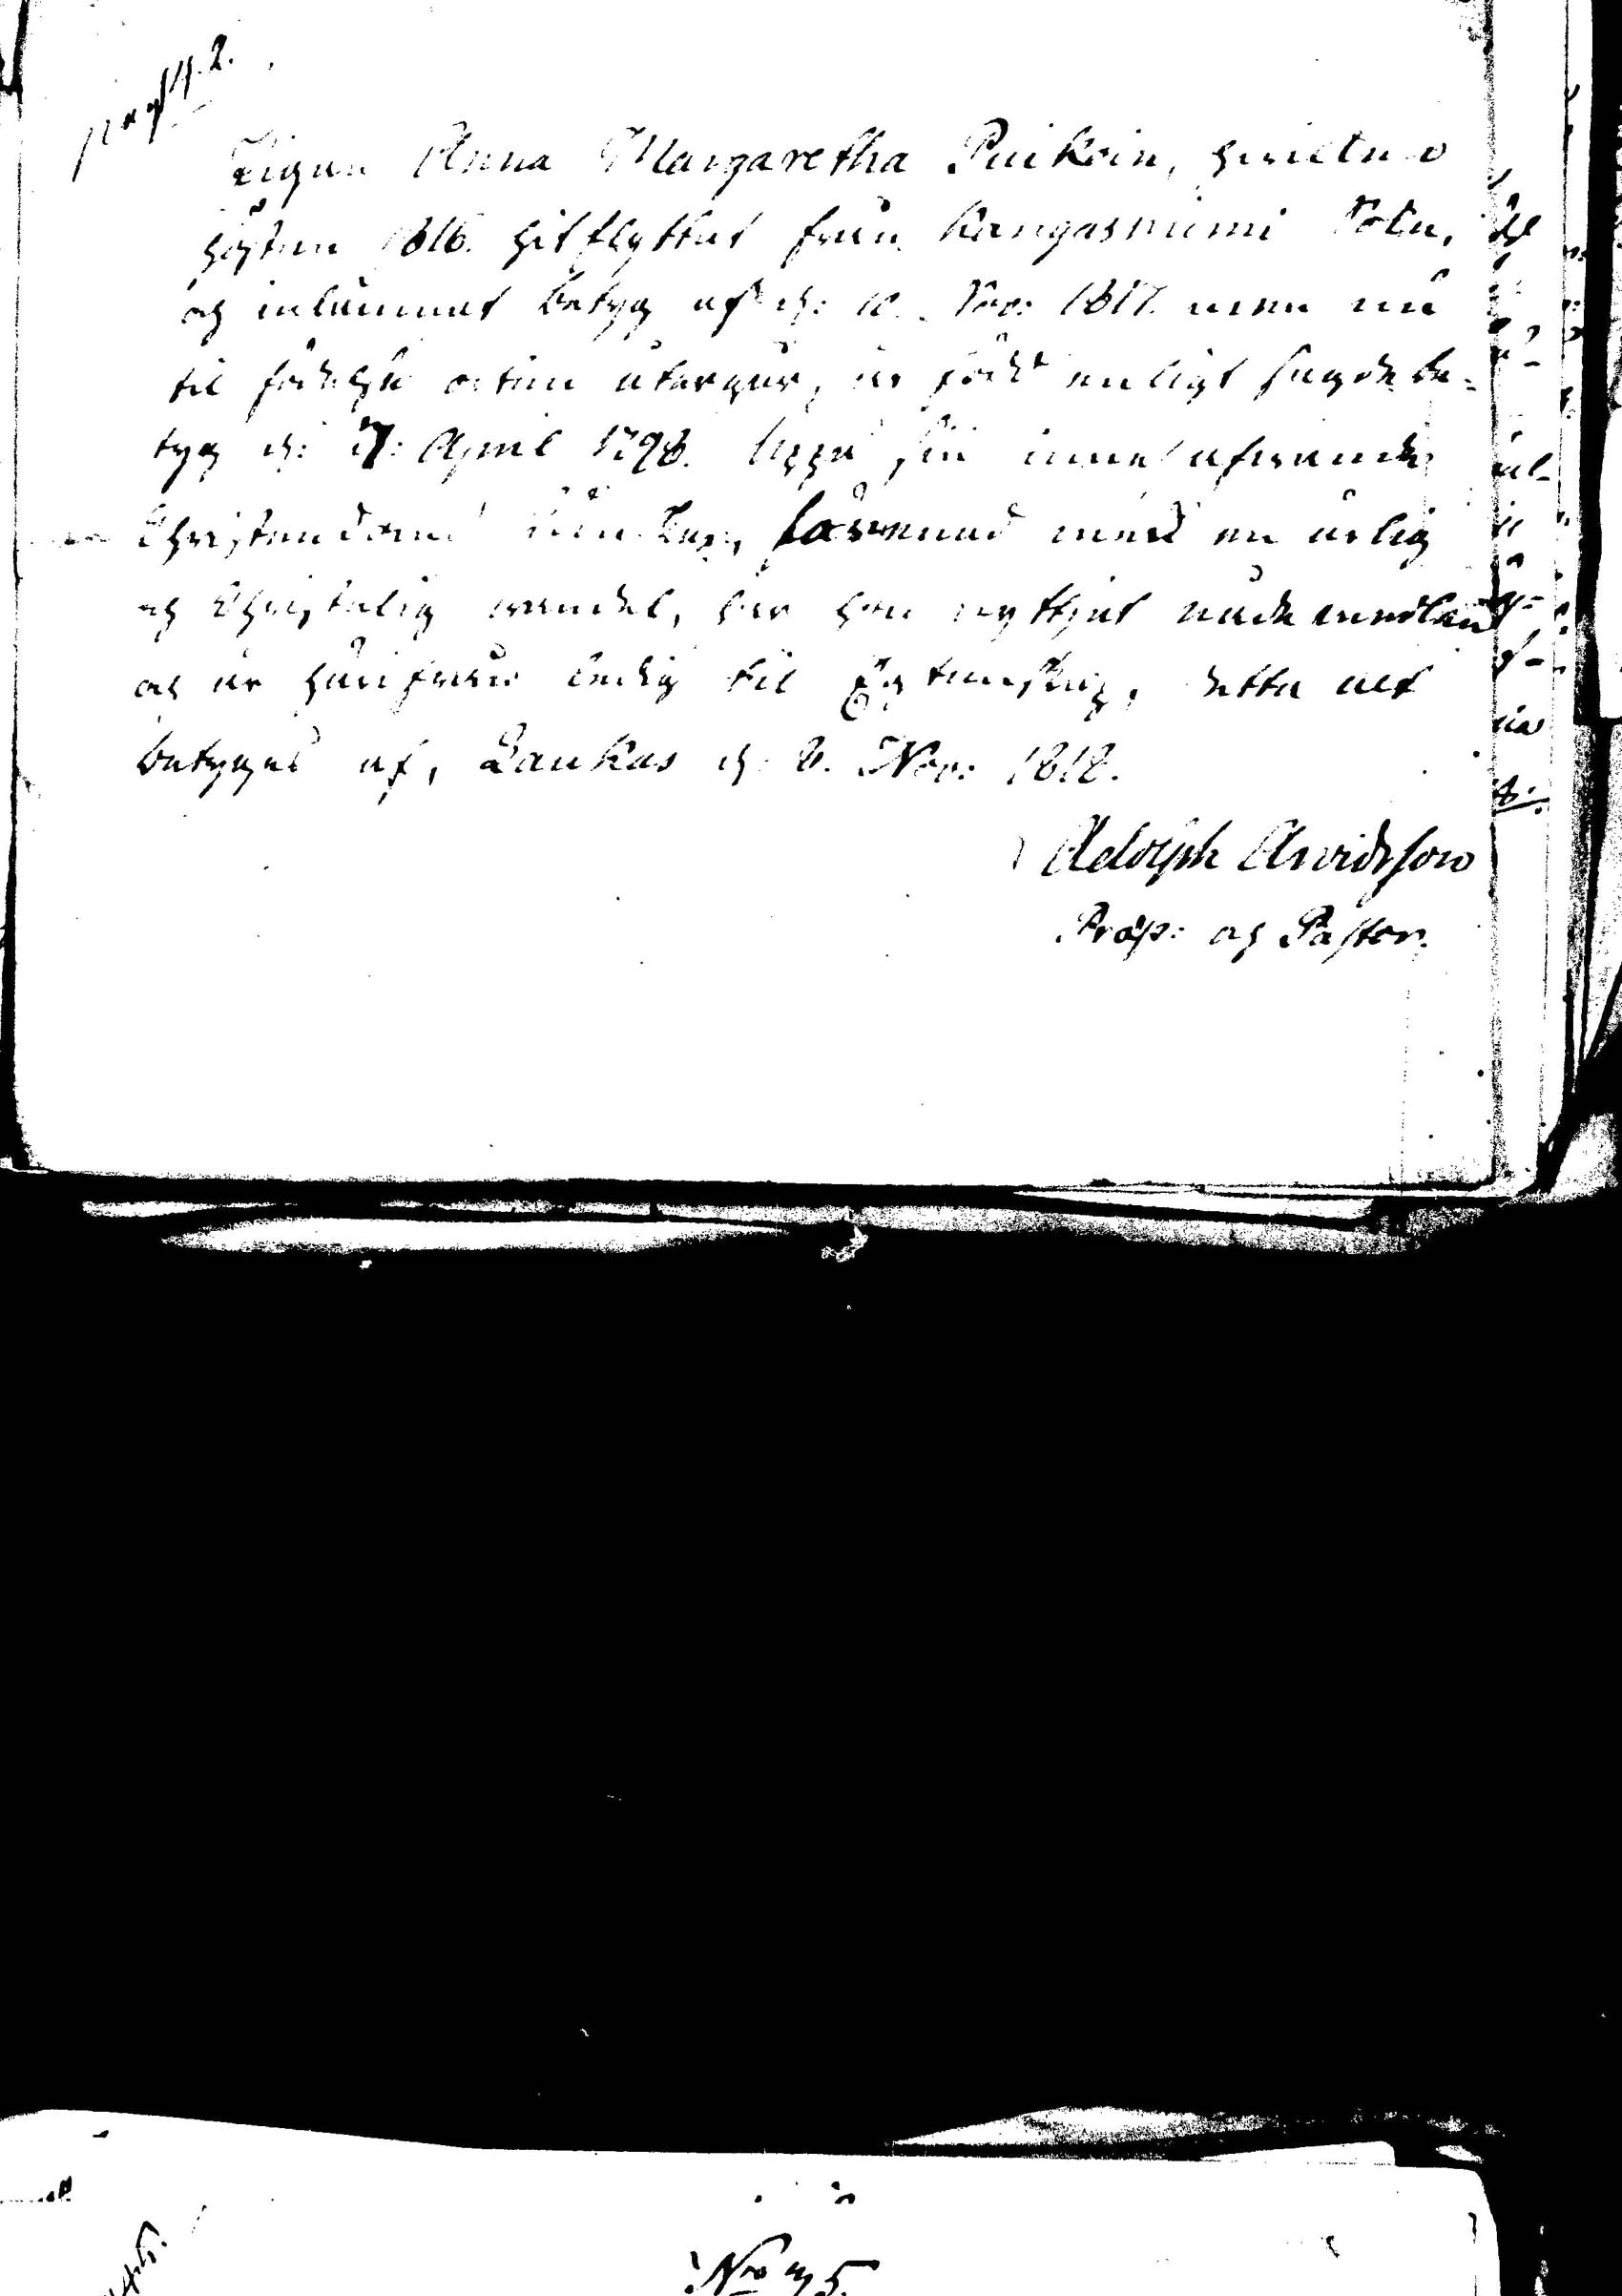 Pigan Anna Margaretha Puikoin, hvilken
hösten 1816. hitflyttat från Kangasniemi Sokn,
och inlämnat betyg af d: 10. Nov: 1817. men nu
til födelse orten återgår, är född enligt sagde be-
tyg d: 7: April 1798. Uppå sin innehafvande
Christendoms kundskap, förenad med en ärlig
och Christelig vandel, har hon nyttjat nådemedlen
och är härifrån ledig til Egtenskap, detta alt
betygas af, Laukas d. 8. Nov: 1818.
Adolph Arvidsson
Prosp: och Pastor.
No 75.